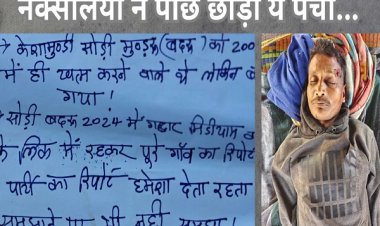 नक्सलियों ने पीछे छोड़ा ये पर्चा...
→ केशामुण्डी सोड़ी मुन्द्रा (बदरू) को 200
में ही खत्म करने वाले थे लेकिन ब
गया!
सोड़ी बदरू 2024 में गद्दार मिडीयाम ब
के लिंक में रहकर पूरे गाँव का रिपोर्ट
पार्टी का रिपोर्ट हमेशा देता रहता
समझाने पर भी नही